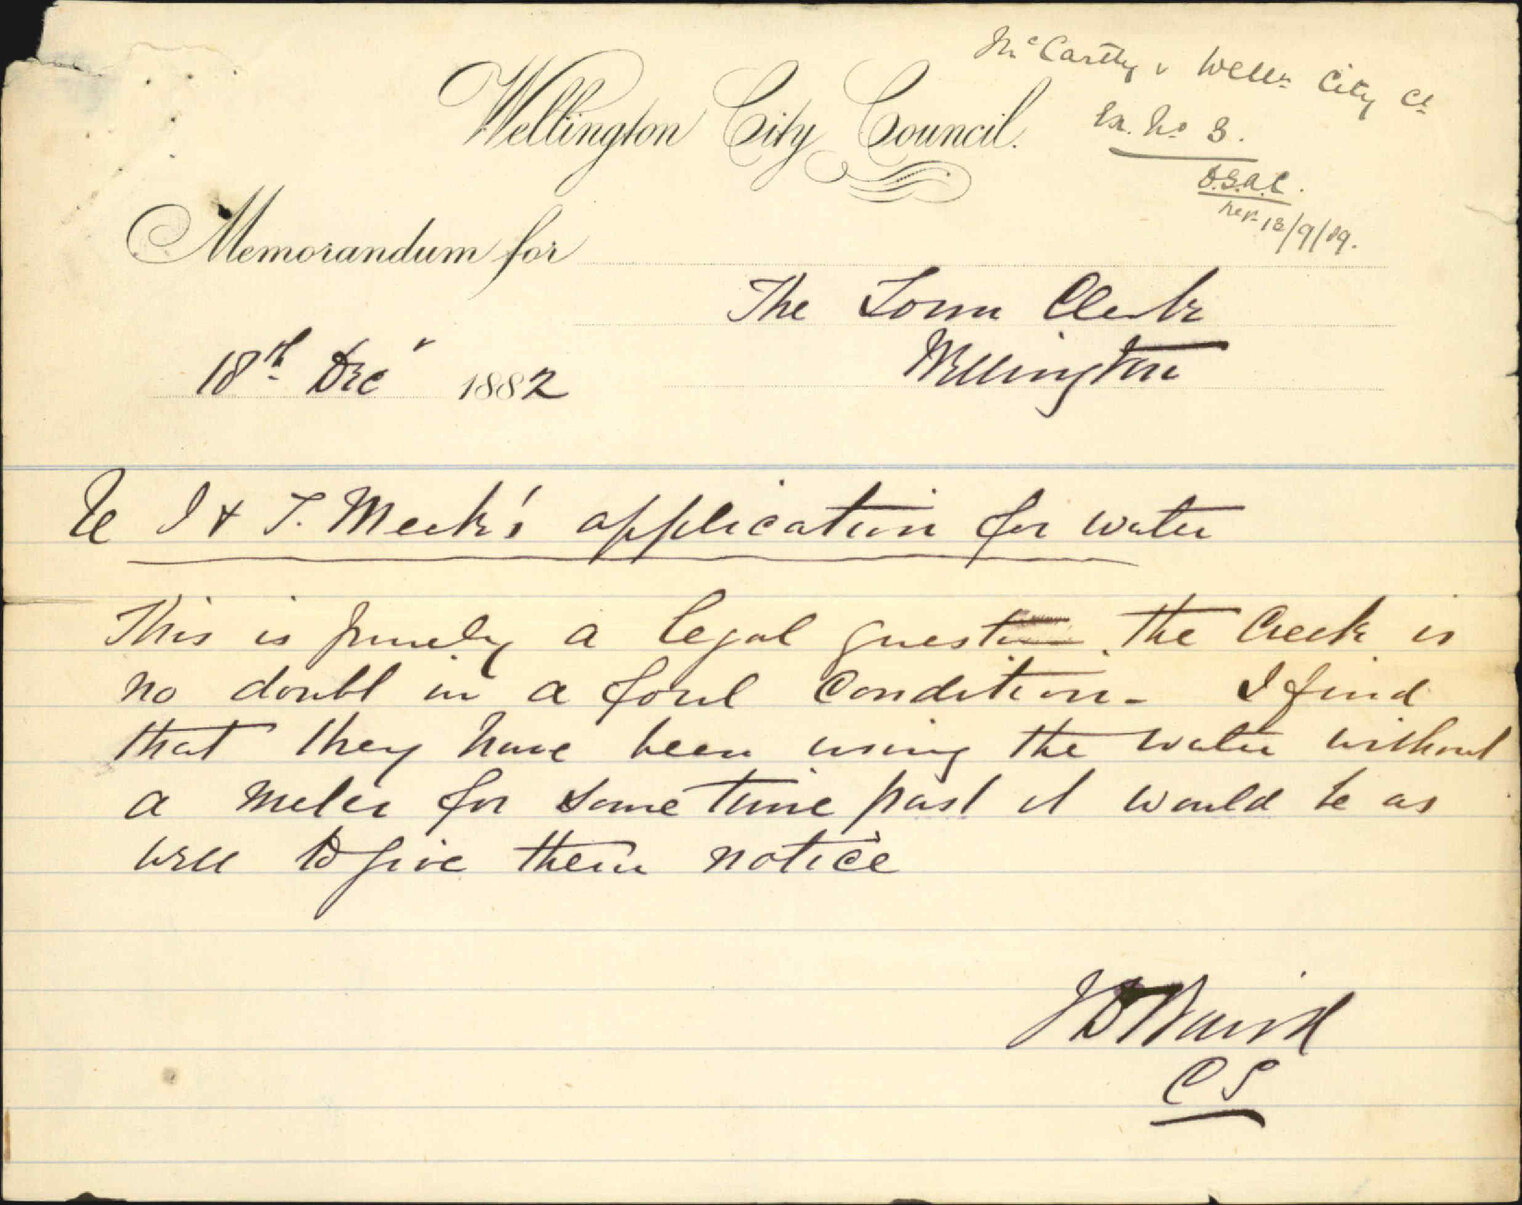 McCarthy v Welln City Cl
Ex. No 3.
Wellington City Council.
D.G.A.C.
13/9/09.
Memorandum for
The Town Clerk
Wellington
18th Decr 1882
Re J & T. Meek's application for water
This is purely a legal question. The Creek is
no doubt in a foul condition - I find
that they have been using the water without
a meter for some time past it would be as
well to give them notice
J D Baird
C S